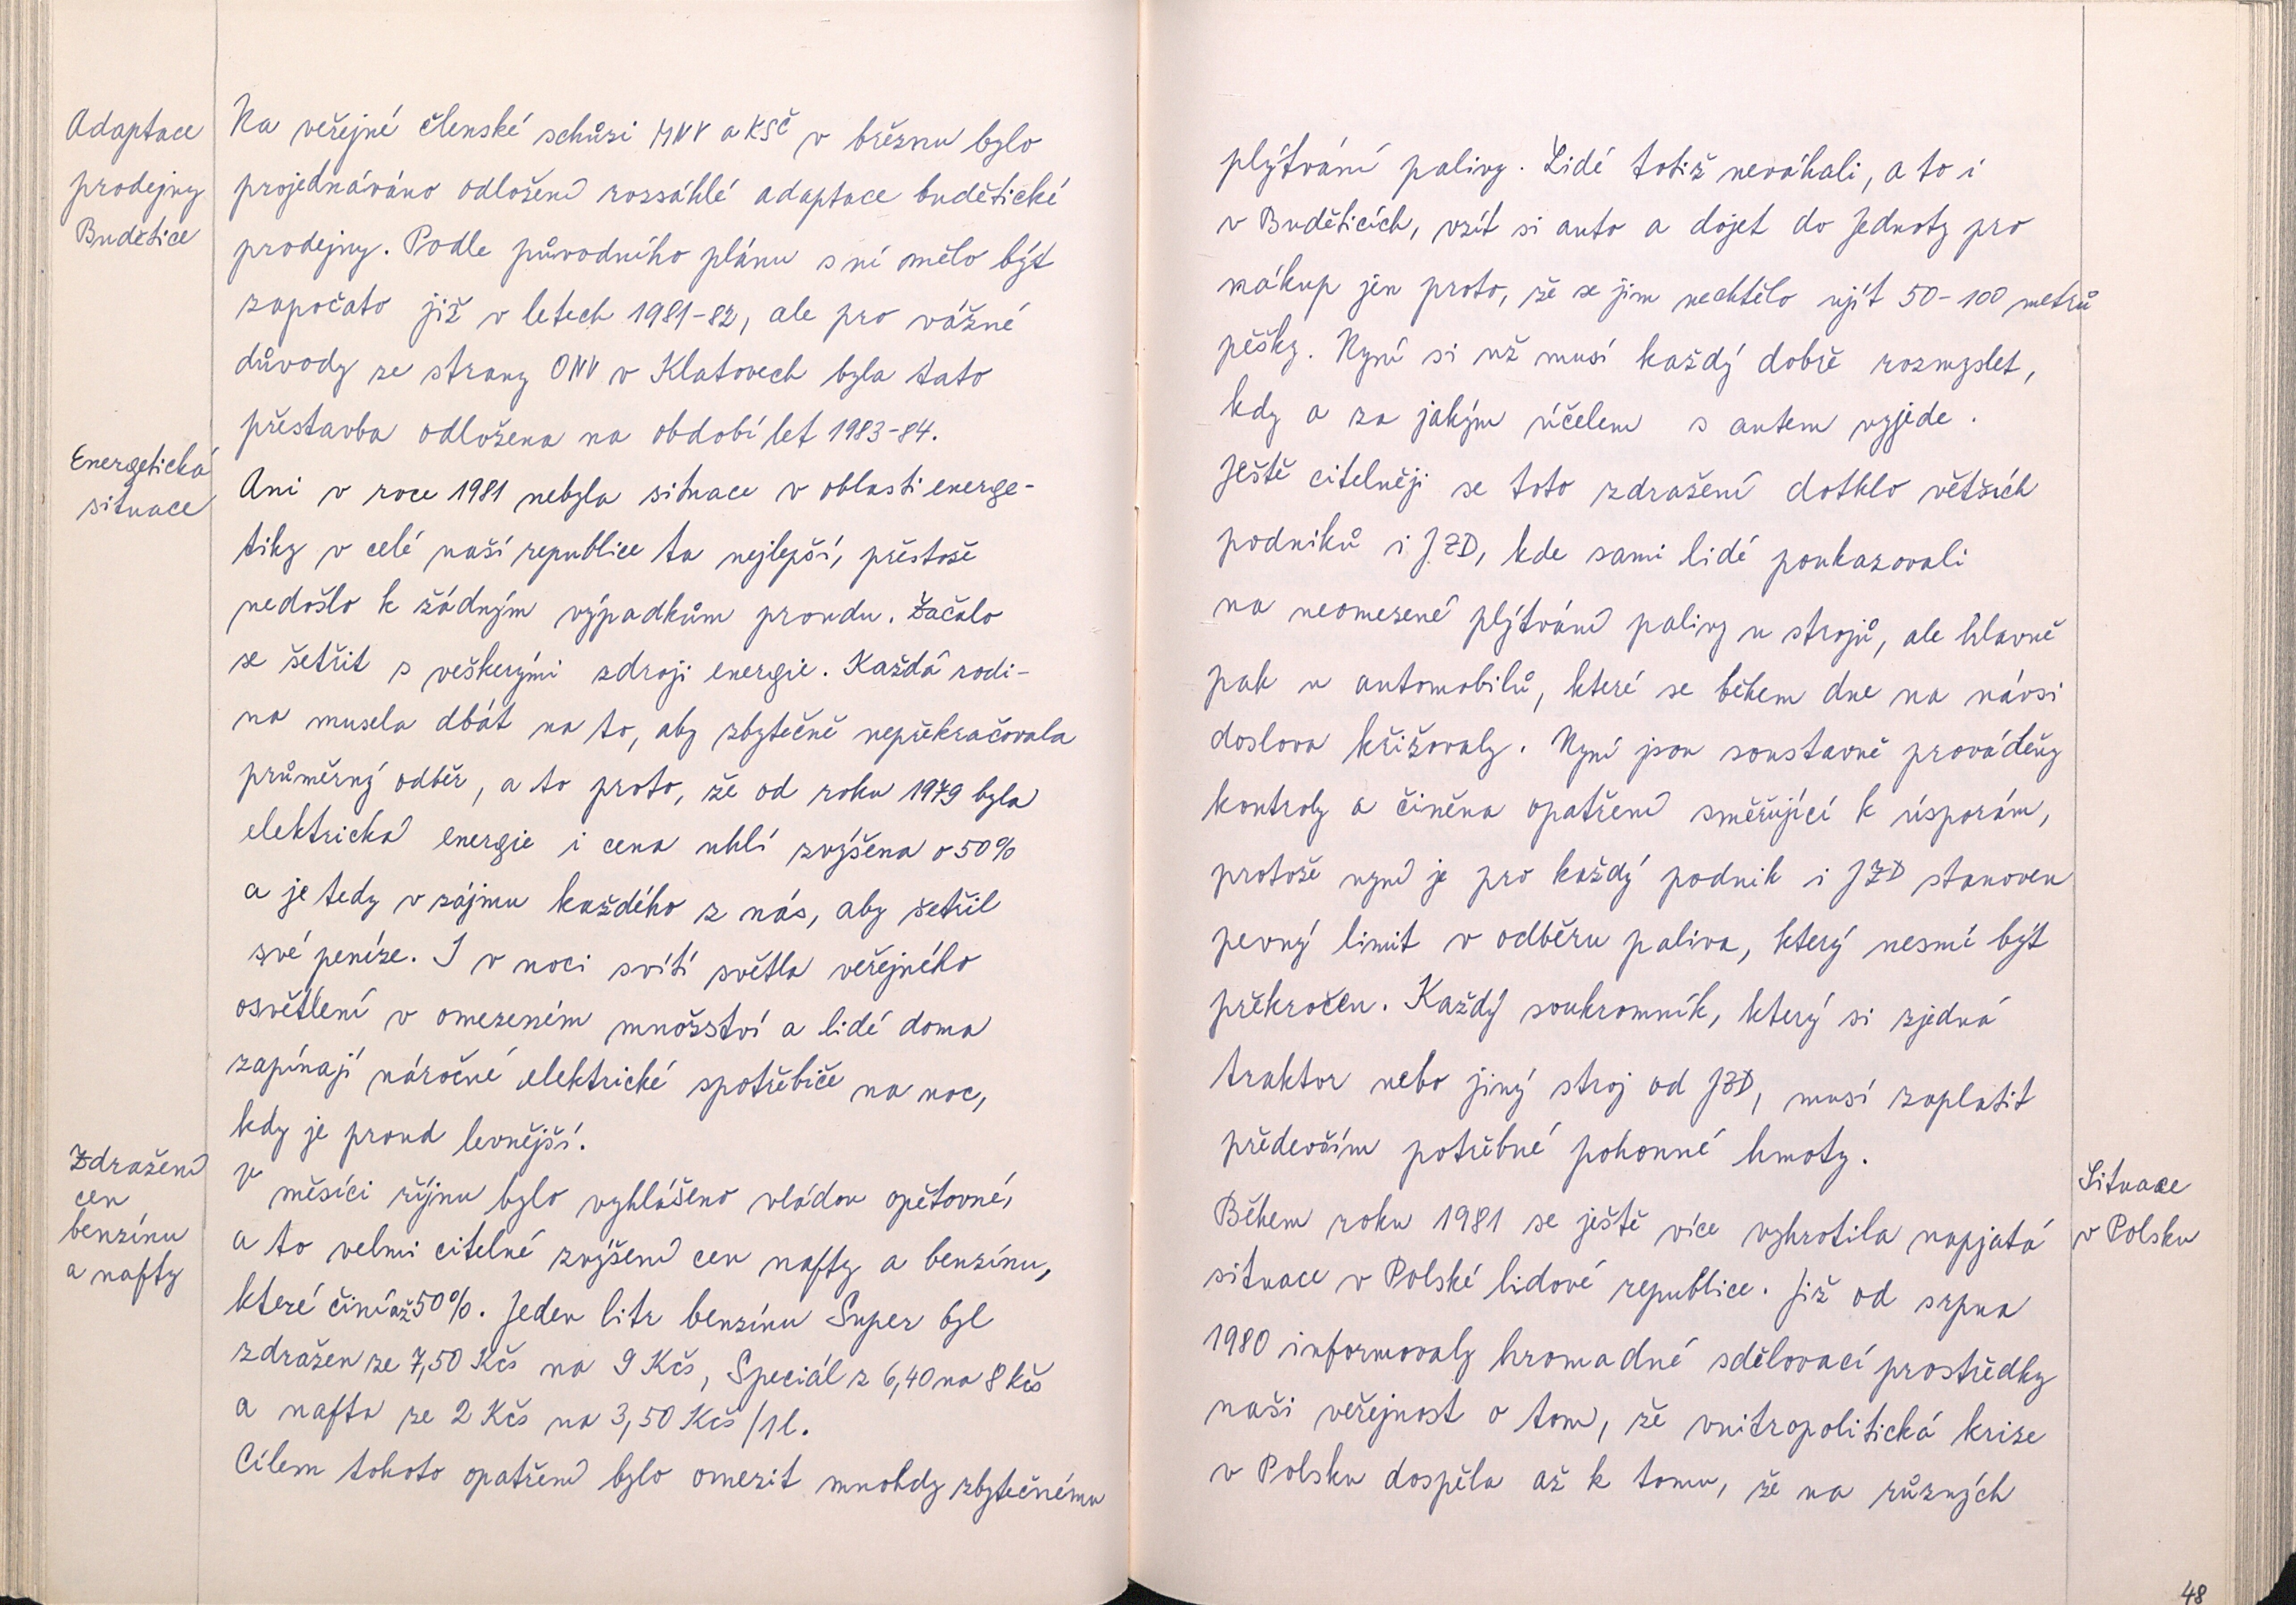 Adaptace
prodejny
Budětice
Na veřejné členské schůzi MNV a KSČ v březnu bylo
projednáváno odložení rozsáhlé adaptace budětické
prodejny. Podle původního plánu s ní mělo být
započato již v letech 1981-82, ale pro vážné
důvody ze strany ONV v Klatovech byla tato
přestavba odložena na období let 1983-84.
Energetická
situace
Ani v roce 1981 nebyla situace v oblasti energe-
tiky v celé naší republice ta nejlepší, přestože
nedošlo k žádným výpadkům proudu. Začalo
se šetřit s veškerými zdroji energie. Každá rodi-
na musela dbát na to, aby zbytečně nepřekračovala
průměrný odběr, a to proto, že od roku 1979 byla
elektrická energie i cena uhlí zvýšena o 50%
a je tedy v zájmu každého z nás, aby šetřil
své peníze. I v noci svítí světla veřejného
osvětlení v omezeném množství a lidé doma
zapínají náročné elektrické spotřebiče na noc,
kdy je proud levnější.
Zdražení
cen
benzínu
a nafty
V měsíci říjnu bylo vyhlášeno vládou opětovné,
a to velmi citelné zvýšení cen nafty a benzínu,
které činí až 50%. Jeden litr benzínu Super byl
zdražen ze 7,50 Kčs na 9 Kčs, Speciál z 6,40 na 8 Kčs
a nafta ze 2 Kčs na 3,50 Kčs/1l.
Cílem tohoto opatření bylo omezit mnohdy zbytečnému
plýtvání palivy. Lidé totiž neváhali, a to i
v Buděticích, vzít si auto a dojet do Jednoty pro
nákup jen proto, že se jim nechtělo ujít 50-100 metrů
pěšky. Nyní si už musí každý dobře rozmyslet,
kdy a za jakým účelem s autem vyjede.
Ještě citelněji se toto zdražení dotklo větších
podniků i JZD, kde sami lidé poukazovali
na neomezené plýtvání palivy u strojů, ale hlavně
pak u automobilů, které se během dne na návsi
doslova křižovaly. Nyní jsou soustavně prováděny
kontroly a činěna opatření směřující k úsporám,
protože nyní je pro každý podnik i JZD stanoven
pevný limit v odběru paliva, který nesmí být
překročen. Každý soukromník, který si zjedná
traktor nebo jiný stroj od JZD, musí zaplatit
především potřebné pohonné hmoty.
Situace
v Polsku
Během roku 1981 se ještě více vyhrotila napjatá
situace v Polské lidové republice. Již od srpna
1980 informovaly hromadné sdělovací prostředky
naši veřejnost o tom, že vnitropolitická krize
v Polsku dospěla až k tomu, že na různých
48